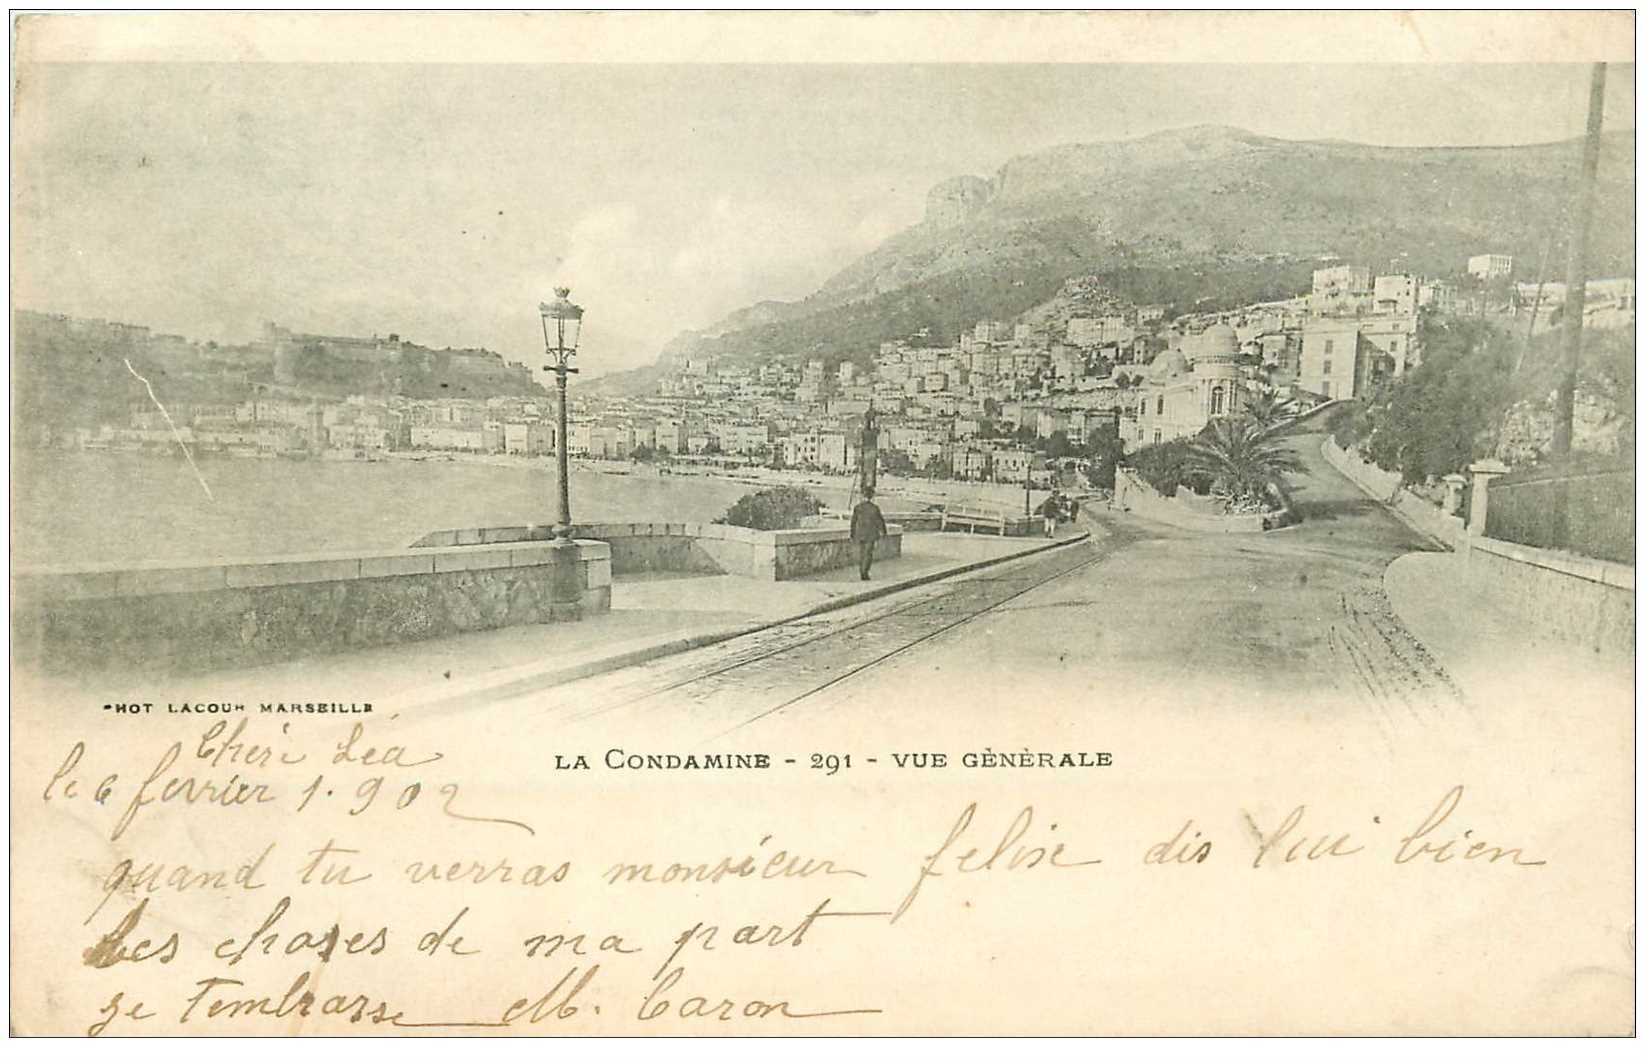 PHOT LACOUR MARSEILLE
LA CONDAMINE - 291 - VUE GÈNÈRALE
Chéri Léa
le 6 ferrier 1.902
quand tu verras monsieur felise dis lui bien
des choses de ma part
je t'embrasse M. Caron